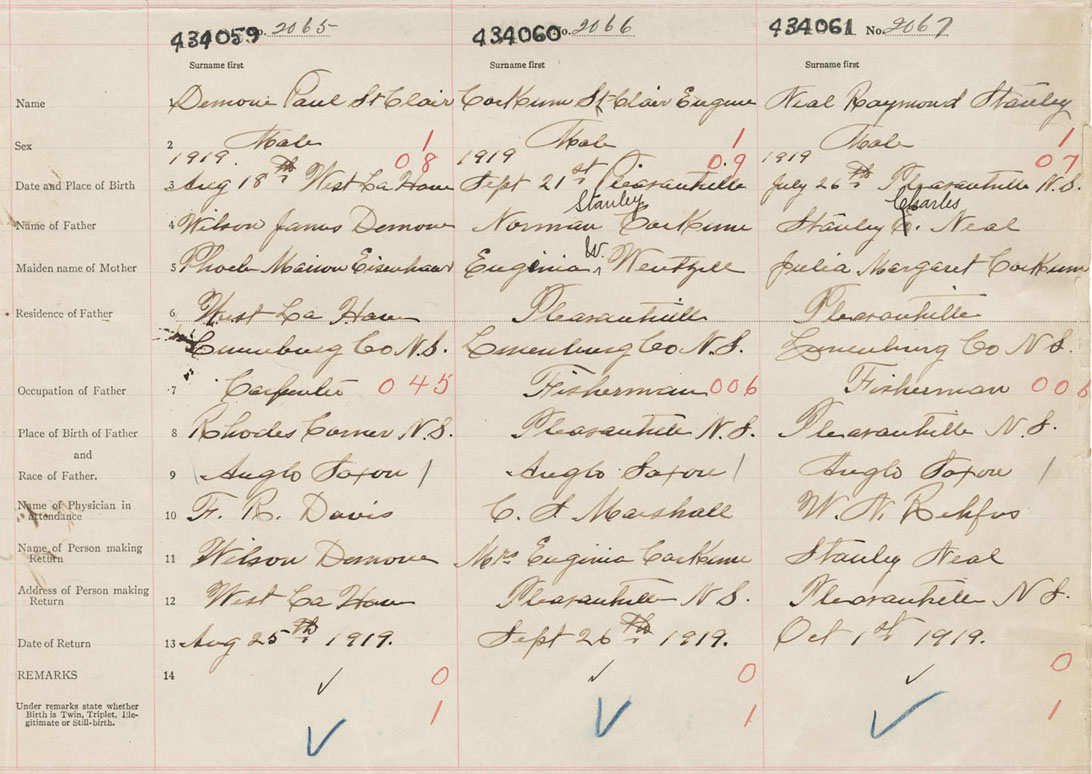 434059 No. 2065 434060 No. 2066 434061 No. 2067
Surname first Surname first Surname first
Name 1 Demone Paul St Clair Corkum St Clair Eugene Neal Raymond Stanley
Sex 2 Male 1 Male 1 Male 1
1919. 08 1919 0.9 1919 07
Date and Place of Birth 3 Aug 18th West La Have Sept 21st Pleasantville July 26th Pleasantville N.S.
Stanley Charles
Name of Father 4 Wilson James Demone Norman Corkum Stanley C. Neal
Maiden name of Mother 5 Phoebe Marion Eisenhauer Euginia W. Wentzell Julia Margaret Corkum
Residence of Father 6 West La Have Pleasantville Pleasantville
Lunenburg Co N.S. Lunenburg Co N.S. Lunenburg Co N S.
Occupation of Father 7 Carpenter 045 Fisherman 006 Fisherman 006
Place of Birth of Father 8 Rhodes Corner N.S. Pleasantville N.S. Pleasantville N.S.
and
Race of Father. 9 Anglo Saxon Anglo Saxon Anglo Saxon
Name of Physician in
attendance 10 F. R. Davis C. S. Marshall W. N. Rehfus
Name of Person making
Return 11 Wilson Demone Mrs Euginia Corkum Stanley Neal
Address of Person making
Return 12 West La Have Pleasantville N S. Pleasantville N S.
Date of Return 13 Aug 25th 1919. Sept 26th 1919. Oct 1st 1919.
REMARKS 14 ✓ 0 ✓ 0 ✓ 0
Under remarks state whether
Birth is Twin, Triplet, Ille-
gitimate or Still-birth. ✓ 1 ✓ 1 ✓ 1